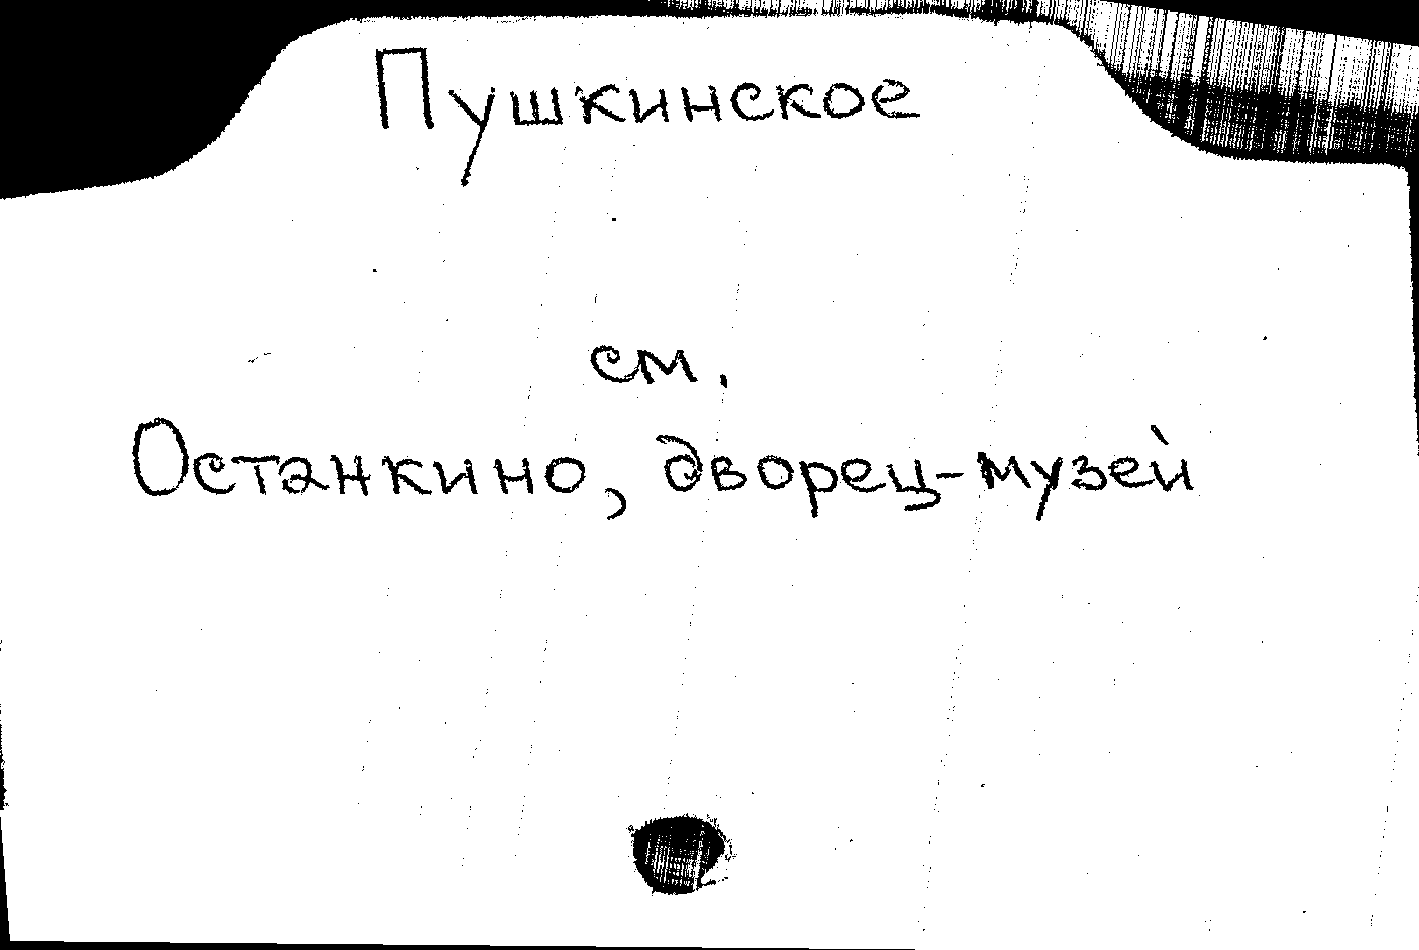 Пушкинское
см.
Останкино, дворец-музей